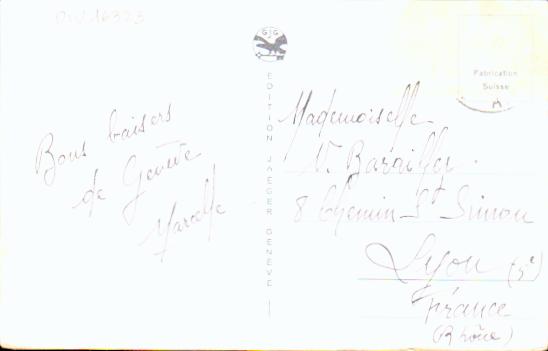 Bons baisers
de Genève
Marcelle
G G
EDITION JAEGER GENEVE
Fabrication
Suisse
Mademoiselle
8 Chemin St Simon
Lyon (5e)
France
(Rhône)